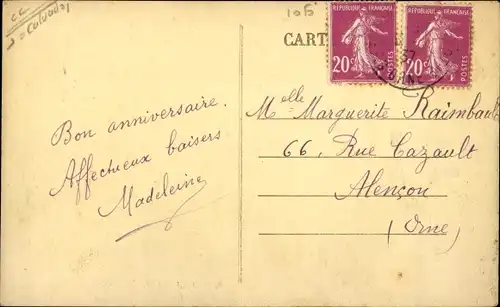 Calvados
105
CART
RÉPUBLIQUE FRANÇAISE
20c POSTES
RÉPUBLIQUE FRANÇAISE
20c POSTES
ORNE
Bon anniversaire.
Affectueux baisers
Madeleine
Melle Marguerite Raimbault
66, Rue Cazault
Alençon
(Orne)